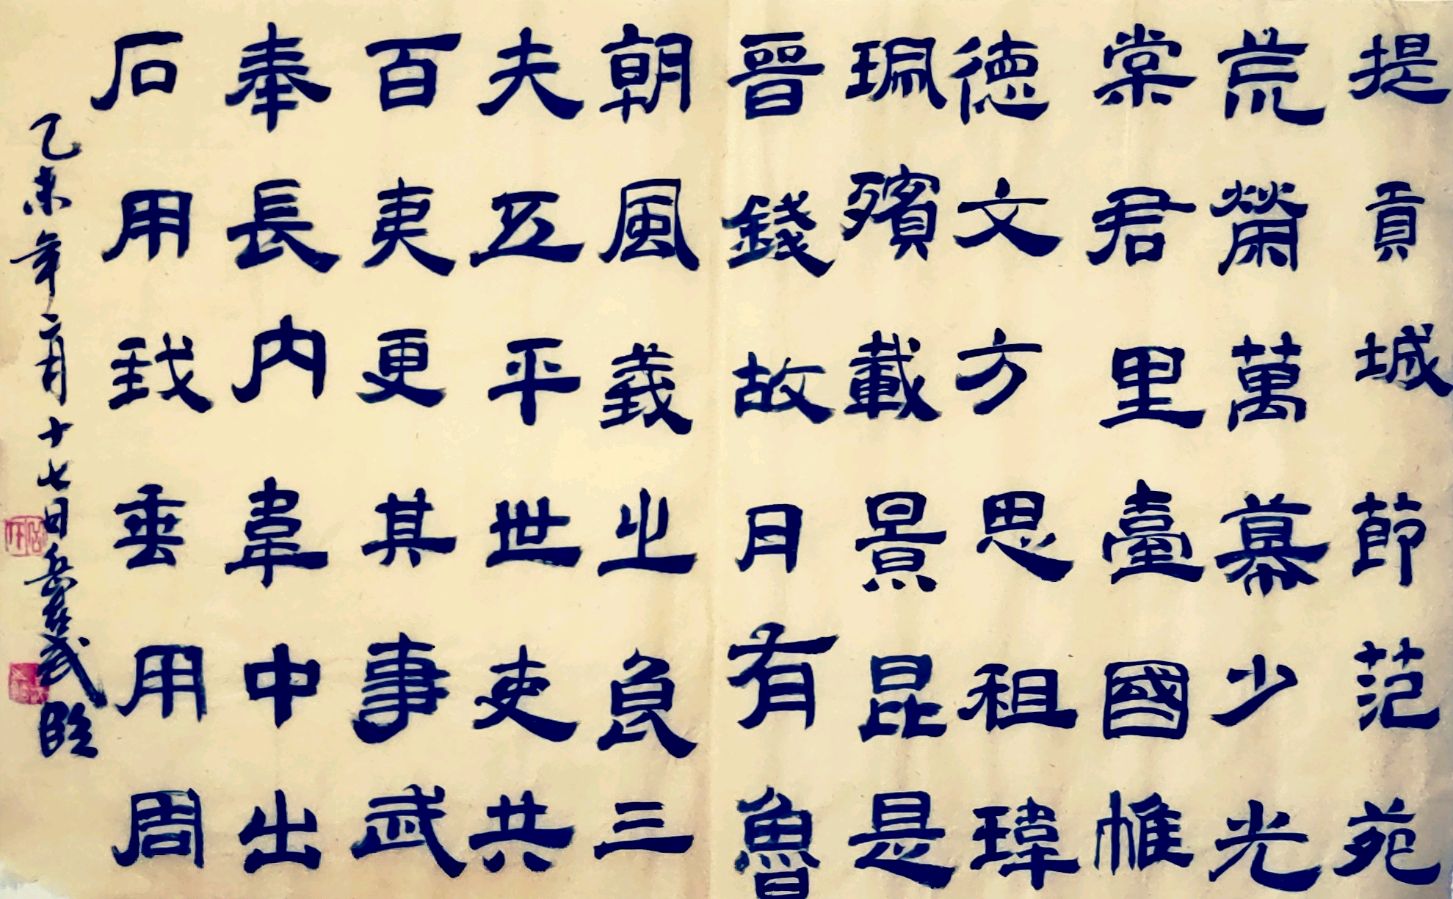 提貢城節范苑
荒榮萬幕少光
棠君里臺國帷
德文方思祖瑋
珮殯載景昆是
晉錢故月有魯
朝風義之良三
夫五平世吏共
百夷更其事武
奉長內韋中出
石用我垂用周
乙未年二月十七日 臨